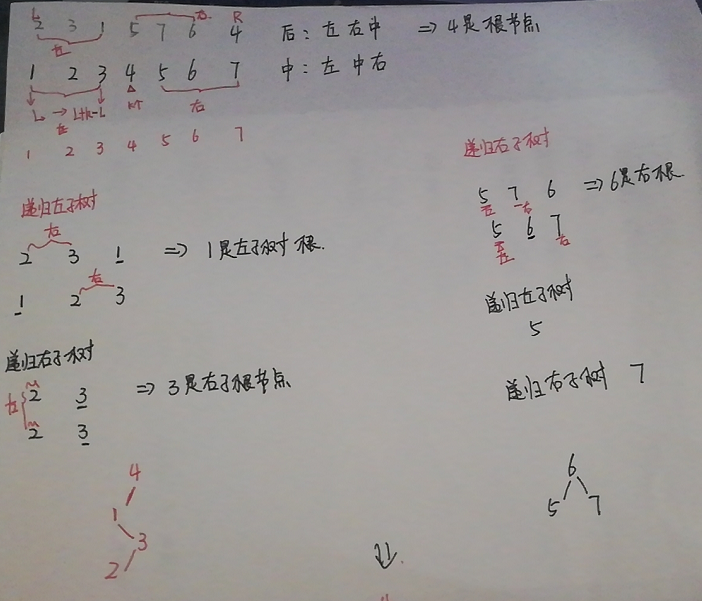 L R
2 3 1 5 7 6 4 后：左右中 ⇒ 4是根节点
左 右
1 2 3 4 5 6 7 中：左中右
左 右
1 2 3 4 5 6 7
递归左子树
右
2 3 1 ⇒ 1是左子树根.
右
1 2 3
递归右子树
2 3 ⇒ 3是右子根节点
左
2 3
4
1
3
2
递归右子树
5 7 6 ⇒ 6是右根
左 右
5 6 7
左 右
递归左子树
5
递归右子树 7
6
5 7
⇓